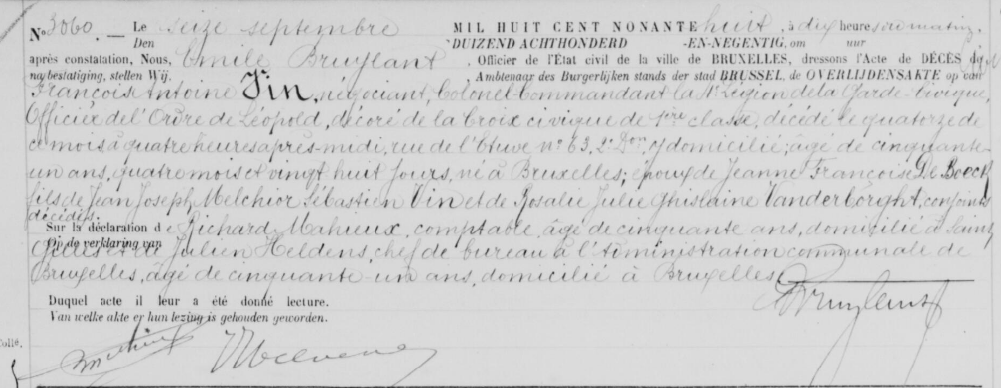 N° 3060. — Le seize septembre MIL HUIT CENT NONANTE huit, à dix heures du matin,
Den DUIZEND ACHTHONDERD -EN-NEGENTIG, om uur
après constatation, Nous, Emile Bruylant, Officier de l'État civil de la ville de BRUXELLES, dressons l'Acte de DÉCÈS de
na bestatiging, stellen Wij, Ambtenaar des Burgerlijken stands der stad BRUSSEL, de OVERLIJDENSAKTE op van
François Antoine Vin, négociant, Colonel Commandant la Légion de la Garde-Civique,
Officier de l'Ordre de Léopold, décoré de la Croix civique de 1ère classe, décédé le quatorze de
ce mois à quatre heures après-midi, rue de l'Etuve n° 63, 2e Don, y domicilié; âgé de cinquante-
un ans, quatre mois et vingt huit jours, né à Bruxelles; époux de Jeanne Françoise De Boeck
fils de Jean Joseph Melchior Sébastien Vin et de Rosalie Julie Ghislaine Vanderborght, conjoints
décédés.
Sur la déclaration de Richard Mahieux, comptable, âgé de cinquante ans, domicilié à Saint
Op de verklaring van Gilles et de Julien Heldens, chef de bureau à l'administration communale de
Bruxelles, âgé de cinquante-un ans, domicilié à Bruxelles
Duquel acte il leur a été donné lecture.
Van welke akte er hun lezing is gehouden geworden.
Bruylant